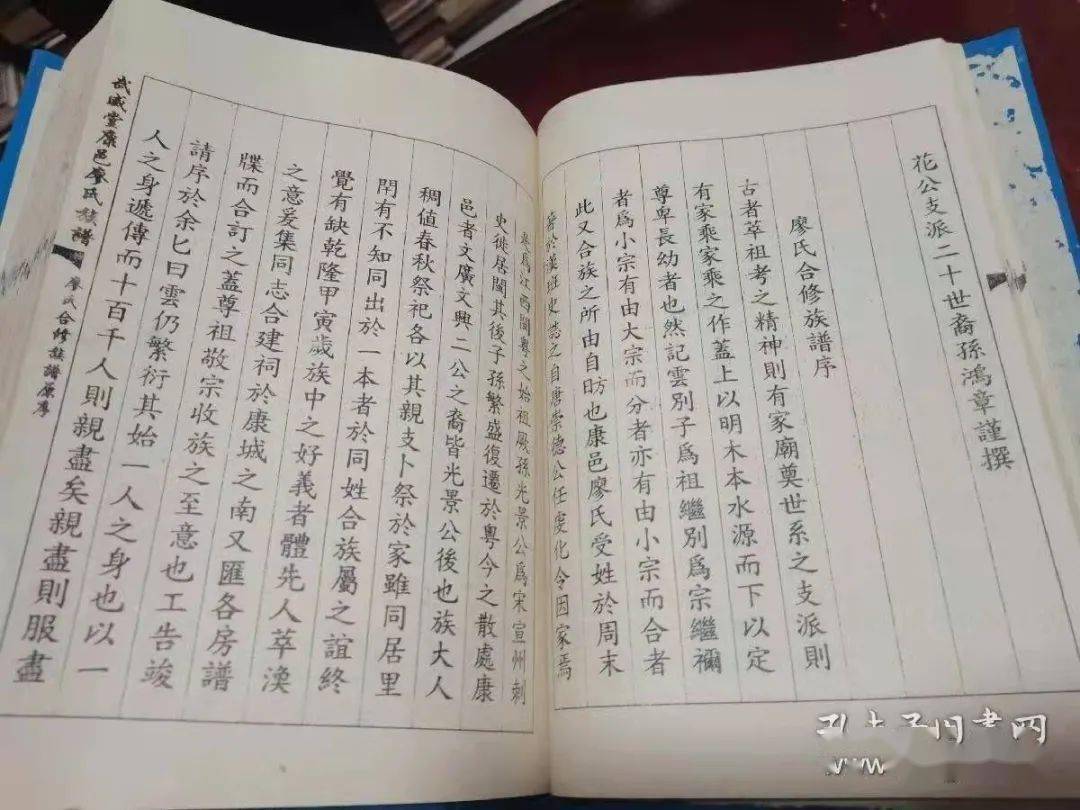 花公支派二十世裔孫鴻章謹撰
廖氏合修族譜序
古者萃祖考之精神則有家廟奠世系之支派則
有家乘家乘之作蓋上以明木本水源而下以定
尊卑長幼者也然記雲別子為祖繼別為宗繼禰
者為小宗有由大宗而分者亦有由小宗而合者
此又合族之所由自昉也康邑廖氏受姓於周末
著於漢班史誌之自唐崇德公任虔化令因家焉
為江西閩粵之始祖厥孫光景公為宋宣州刺
史徙居閩其後子孫繁盛復遷於粵今之散處康
邑者文廣文興二公之裔皆光景公後也族大人
稠值春秋祭祀各以其親支卜祭於家雖同居里
閈有不知同出於一本者於同姓合族屬之誼終
覺有缺乾隆甲寅歲族中之好義者體先人萃渙
之意爰集同志合建祠於康城之南又匯各房譜
牒而合訂之蓋尊祖敬宗收族之至意也工告竣
請序於余匕曰雲仍繁衍其始一人之身也以一
人之身遞傳而十百千人則親盡矣親盡則服盡
武威堂康邑廖氏族譜
廖氏合修族譜原序
孔夫子旧书网